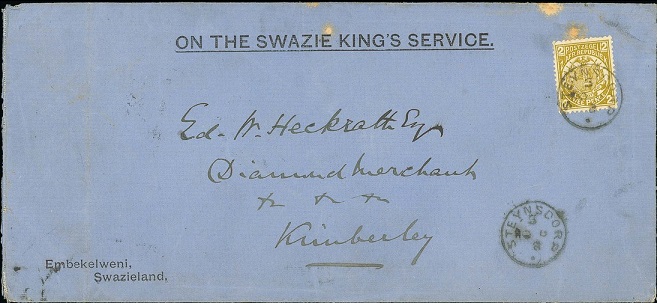 ON THE SWAZIE KING'S SERVICE.
2 POSTZEGEL 2
Ed. W. Heckrath Esq
Diamond Merchant
Kimberley
STEYNSDORP
Embekelweni,
Swazieland.